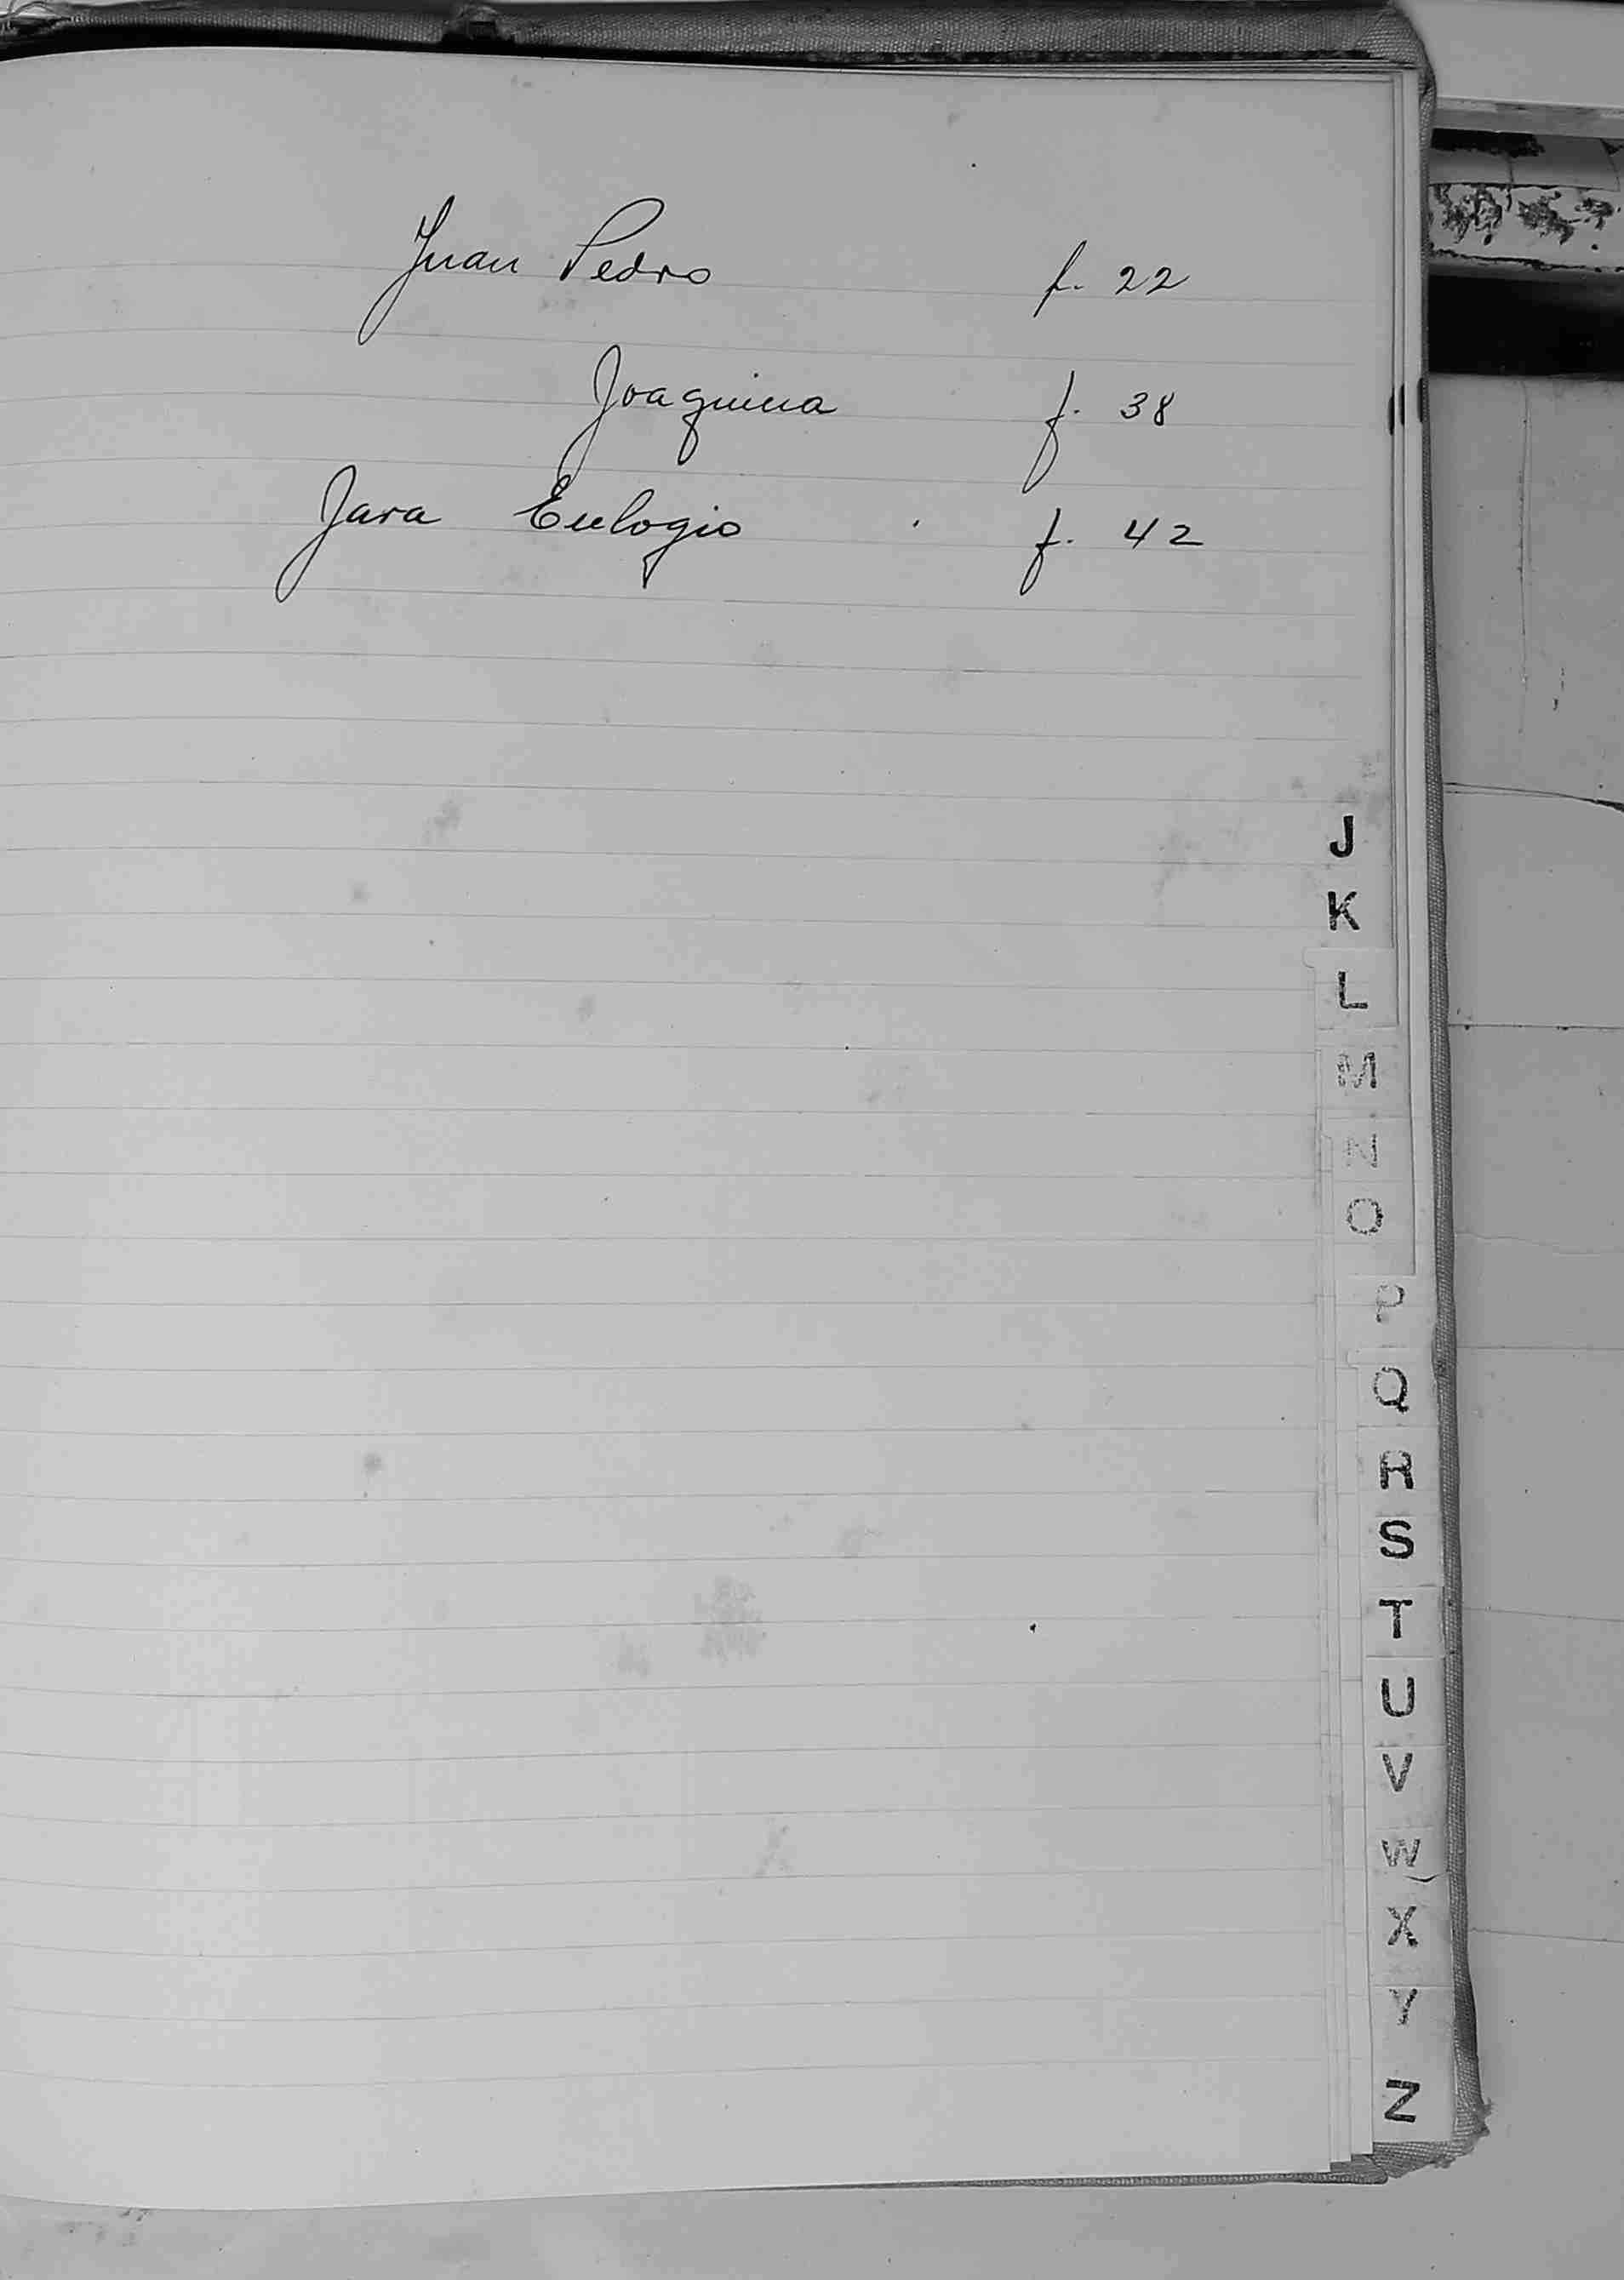 Juan Pedro f. 22
Joaquina f. 38
Jara Eulogio f. 42
J
K
L
M
N
O
P
Q
R
S
T
U
V
W
X
Y
Z